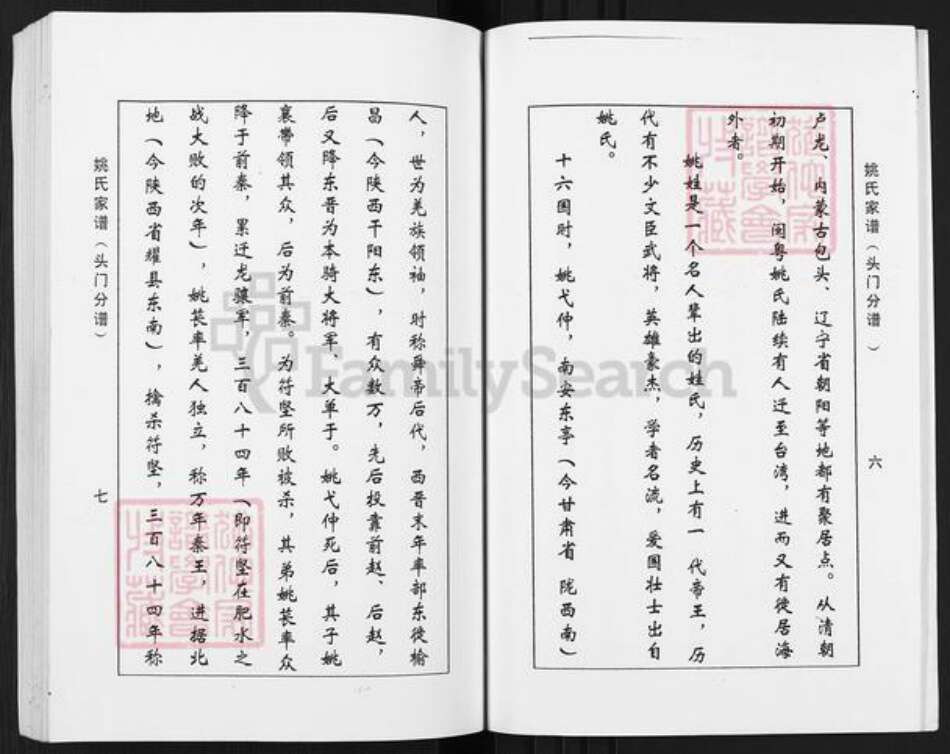 姚氏家谱（头门分谱）
六
卢龙、内蒙古包头、辽宁省朝阳等地都有聚居点。从清朝
初期开始，闽粤姚氏陆续有人迁至台湾，进而又有徙居海
外者。
姚姓是一个名人辈出的姓氏，历史上有一代帝王，历
代有不少文臣武将，英雄豪杰，学者名流，爱国壮士出自
姚氏。
十六国时，姚弋仲，南安东亭（今甘肃省陇西南）
人，世为羌族领袖，时称舜帝后代，西晋末年率部东徙榆
昌（今陕西千阳东），有众数万，先后投靠前赵、后赵，
后又降东晋为本骑大将军、大单于。姚弋仲死后，其子姚
襄带领其众，后为前秦。为符坚所败被杀，其弟姚苌率众
降于前秦，累迁龙骧军，三百八十四年（即符坚在肥水之
战大败的次年），姚苌率羌人独立，称万年秦王，进据北
地（今陕西省耀县东南），擒杀符坚，三百八十四年称
姚氏家谱（头门分谱）
七
FamilySearch